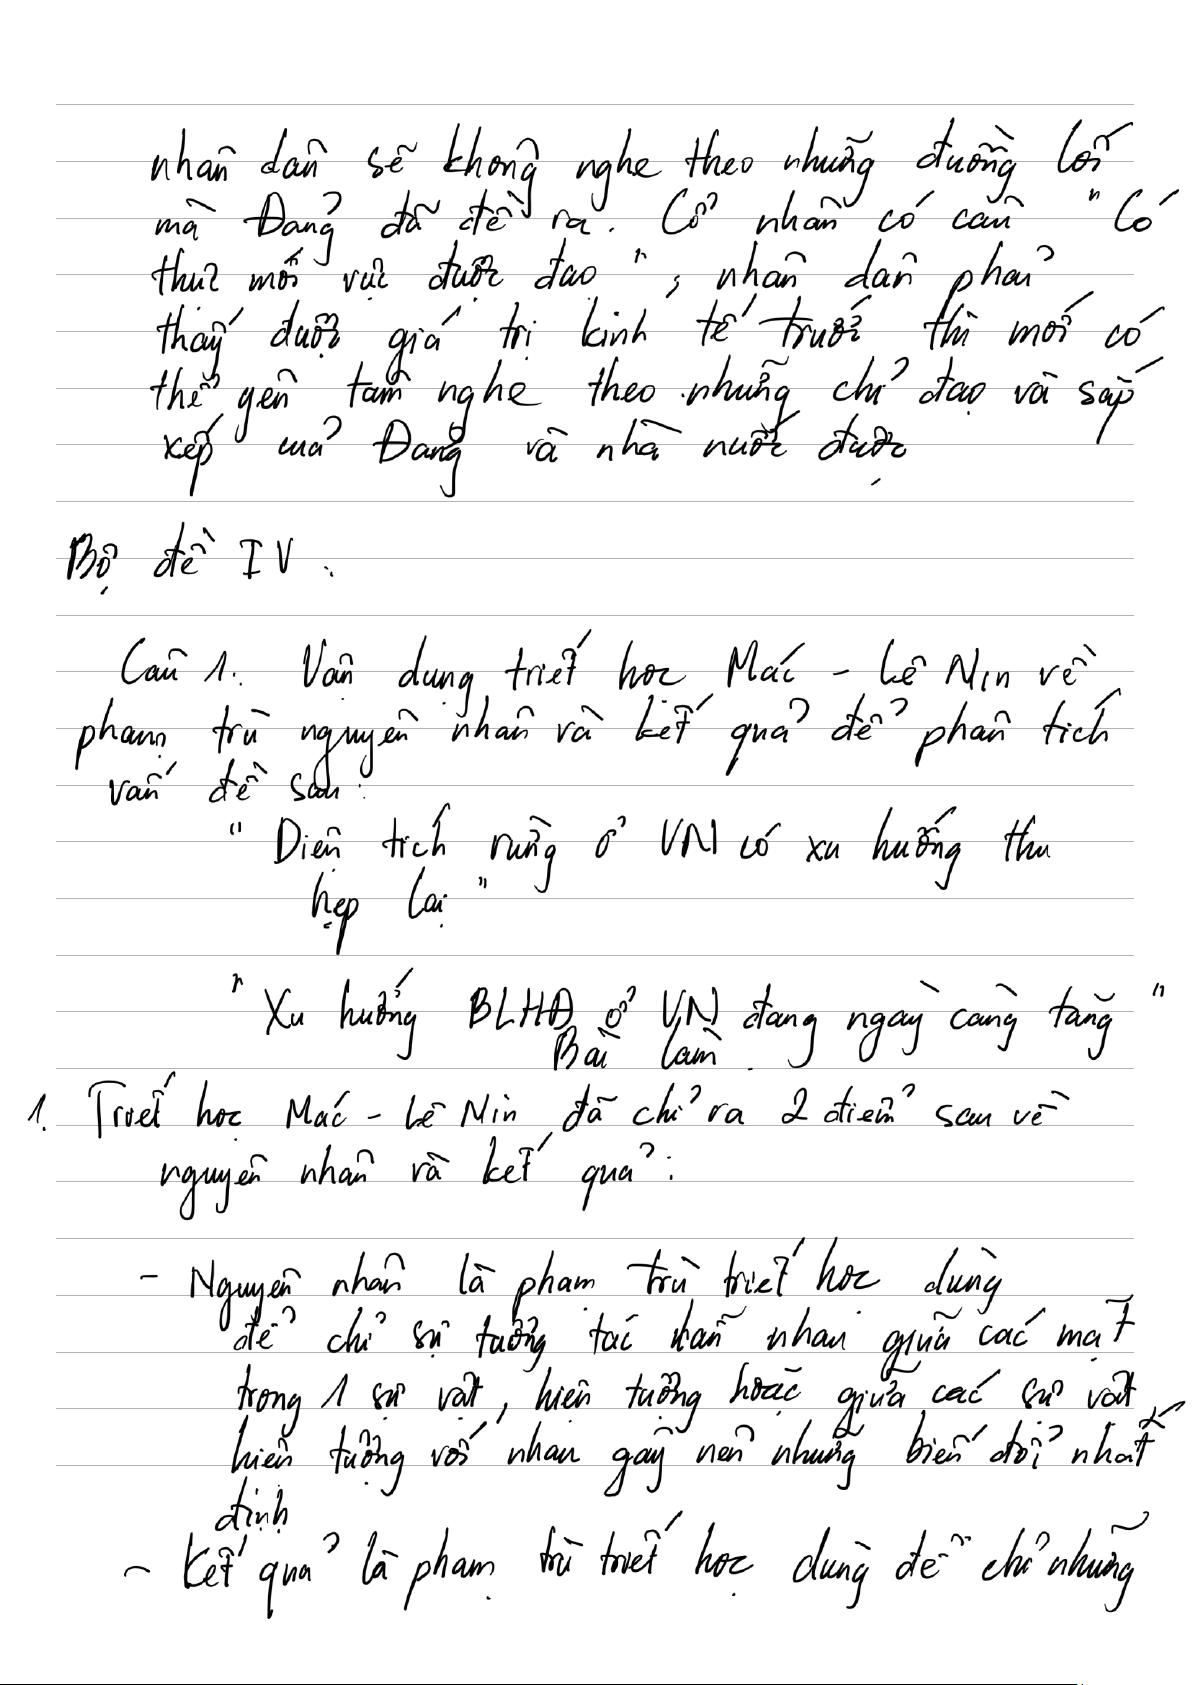 nhân dân sẽ không nghe theo những đường lối
mà Đảng đã đề ra. Cổ nhân có câu "Có
thực mới vực được đạo", nhân dân phải
thấy được giá trị kinh tế trước thì mới có
thể yên tâm nghe theo những chỉ đạo và sắp
xếp của Đảng và nhà nước được
Bộ đề IV.
Câu 1. Vận dụng triết học Mác - Lê Nin về
phạm trù nguyên nhân và kết quả để phân tích
vấn đề sau:
"Diện tích rừng ở VN có xu hướng thu
hẹp lại"
"Xu hướng BLHĐ ở VN đang ngày càng tăng"
Bài làm.
1. Triết học Mác - Lê Nin đã chỉ ra 2 điểm sau về
nguyên nhân và kết quả:
- Nguyên nhân là phạm trù triết học dùng
để chỉ sự tương tác lẫn nhau giữa các mặt
trong 1 sự vật, hiện tượng hoặc giữa các sự vật
hiện tượng với nhau gây nên những biến đổi nhất
định
- Kết quả là phạm trù triết học dùng để chỉ những